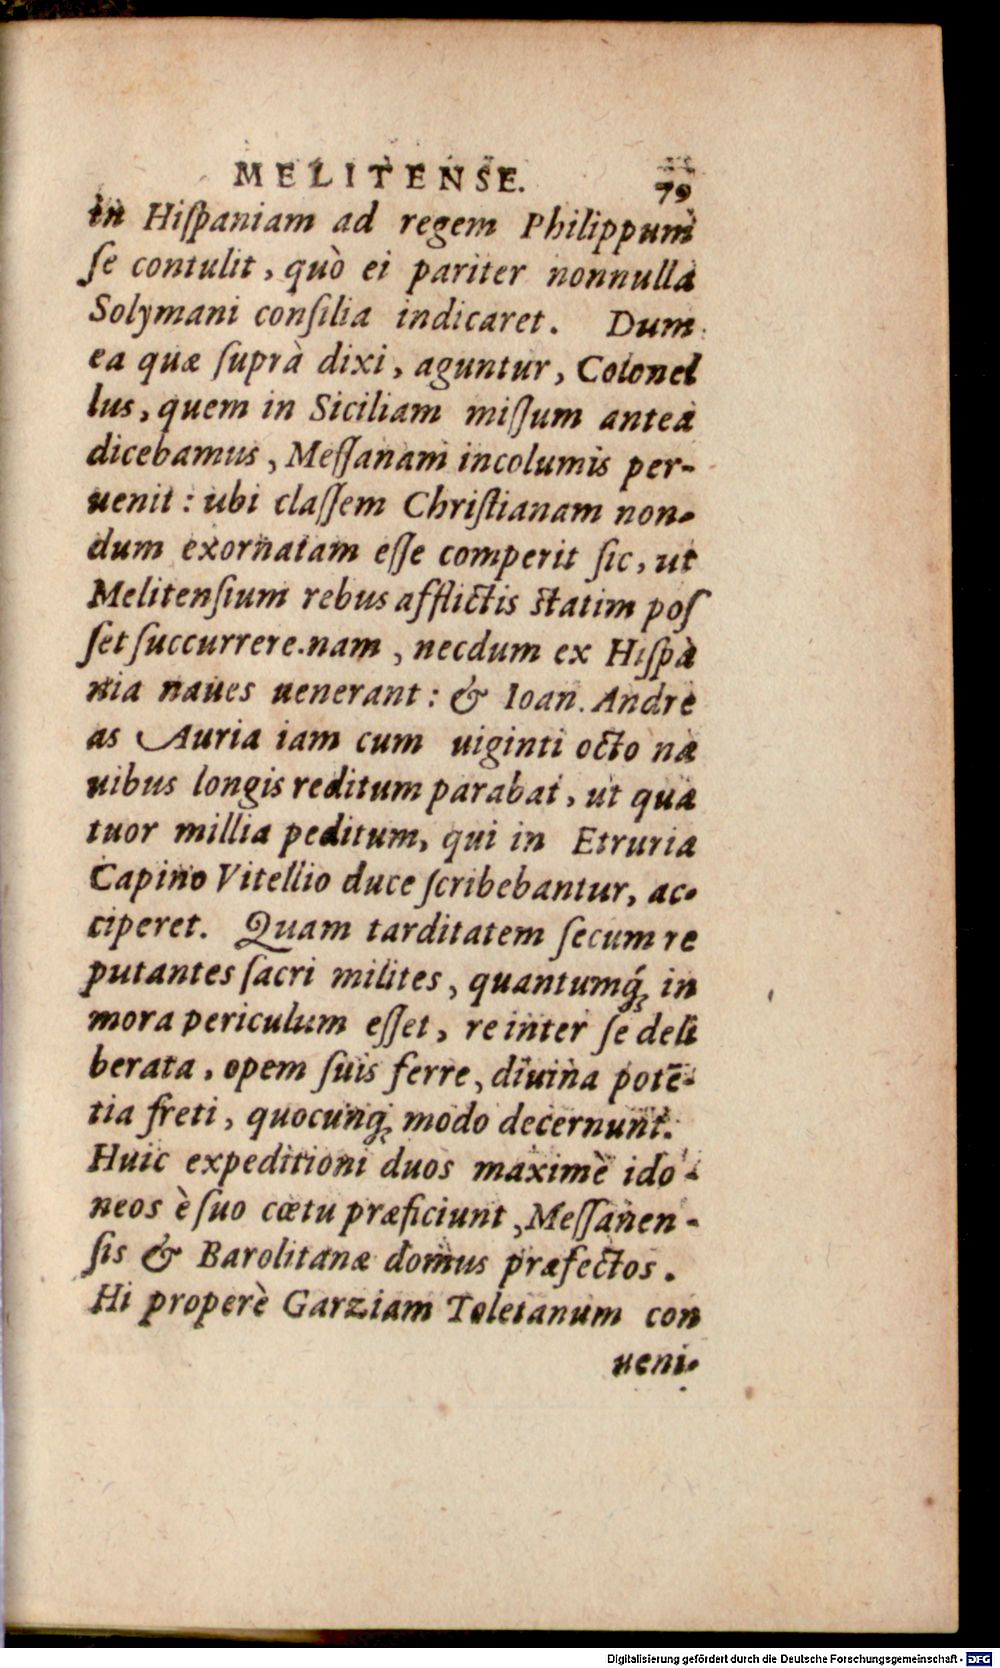 MELITENSE. 79
in Hiſpaniam ad regem Philippum
ſe contulit, quò ei pariter nonnulla
Solymani conſilia indicaret. Dum
ea quæ ſuprà dixi, aguntur, Colonel
lus, quem in Siciliam miſſum antea
dicebamus, Meſſanam incolumis per-
uenit: ubi claſſem Chriſtianam non-
dum exornatam eſſe comperit ſic, ut
Melitenſium rebus afflictis ſtatim poſ
ſet ſuccurrere. nam, necdum ex Hiſpa
nia naues uenerant: & Ioan. Andre
as Auria iam cum uiginti octo na
uibus longis reditum parabat, ut qua
tuor millia peditum, qui in Etruria
Capino Vitellio duce ſcribebantur, ac-
ciperet. Quam tarditatem ſecum re
putantes ſacri milites, quantumq́ꝫ in
mora periculum eſſet, re inter ſe deli
berata, opem ſuis ferre, diuina potē-
tia freti, quocunqꝫ modo decernunt.
Huic expeditioni duos maximè ido-
neos è ſuo cœtu præficiunt, Meſſanen-
ſis & Barolitanæ domus præfectos.
Hi properè Garziam Toletanum con
ueni-
Digitalisierung gefördert durch die Deutsche Forschungsgemeinschaft - DFG